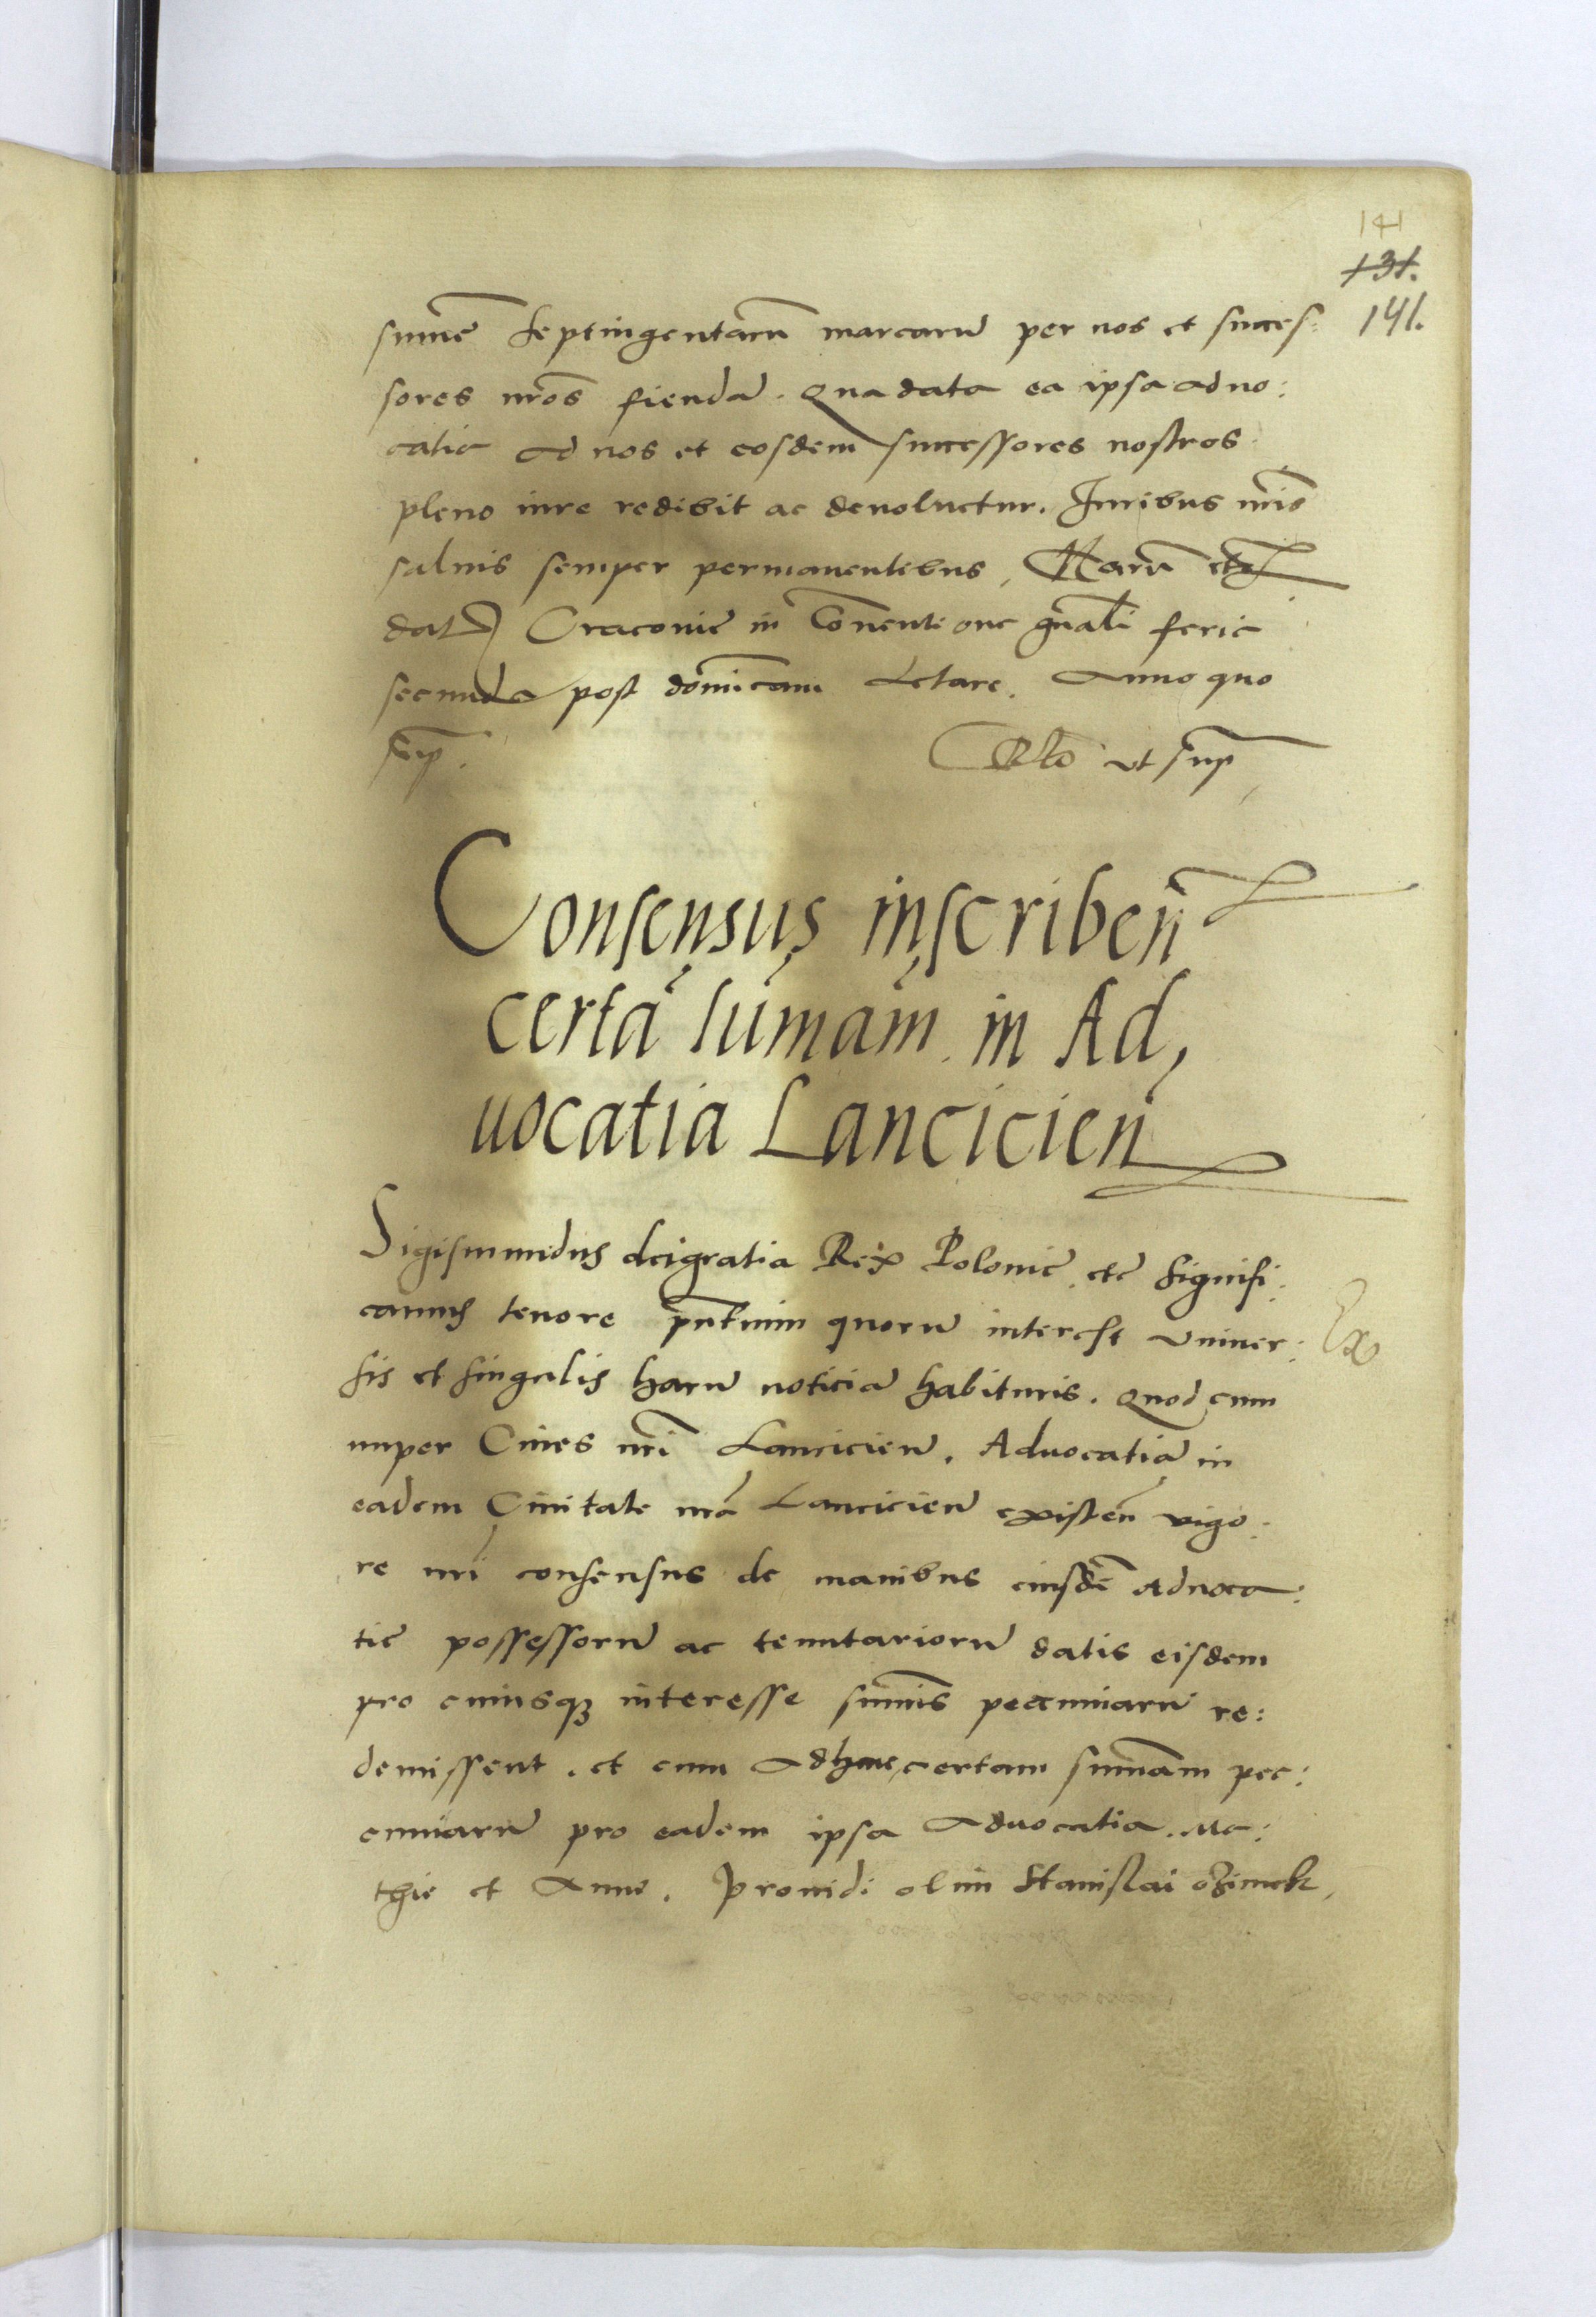 141
131.
141.
sume septingentarum marcaru per nos et succes:
sores nros fienda. Qua data ea ipsa aduo:
catia ad nos et eosdem successores nostros
pleno iure redibit ac deuoluetur. Iuribus nris
saluis semper permanentibus, Haru etc
dat Cracouie in Conuentione gnali feria
secunda post dominicam Letare. Anno quo
sup. Rlo ut sup
Consensus inscriben
certa sumam in Ad,
uocatia Lancicien
Sigismundus dei gratia Rex Polonie etc signifi:
camus tenore pntium quoru interest vniuer:
sis et singulis haru noticia habituris. Quod cum
Ex
nuper Ciues nri Lancicien. Aduocatia in
eadem Ciuitate nra Lancicien existen vigo:
re nri consensus de manibus eiusde Aduoca:
tie possessoru ac tenutarioru datis eisdem
pro cuiusq interesse sumis pecuniaru re:
demissent. et cum adhuc certam sumam pec:
cuniaru pro eadem ipsa Aduocatia. Me:
thie et Anne. prouidi olim Stanislai